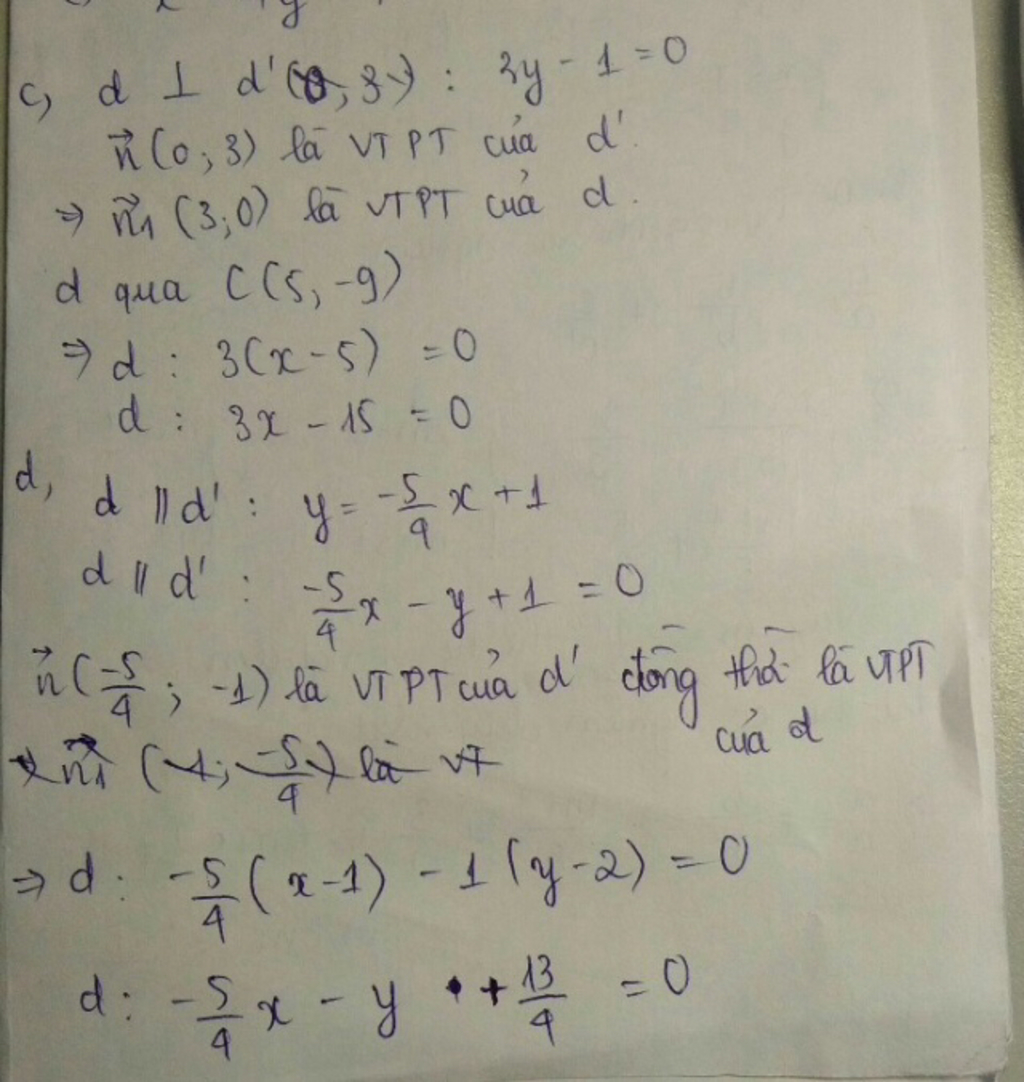 c, d ⊥ d' (0, 3) : 3y - 1 = 0
n⃗ (0; 3) là VTPT của d'.
⇒ n⃗1 (3; 0) là VTPT của d.
d qua C(5, -9)
⇒ d : 3(x - 5) = 0
d : 3x - 15 = 0
d, d // d' : y = -5/4 x + 1
d // d' : -5/4 x - y + 1 = 0
n⃗ (-5/4 ; -1) là VTPT của d' đồng thời là VTPT
của d
⇒ n⃗1 (1; -5/4) là VT
⇒ d : -5/4 (x - 1) - 1 (y - 2) = 0
d : -5/4 x - y + 13/4 = 0